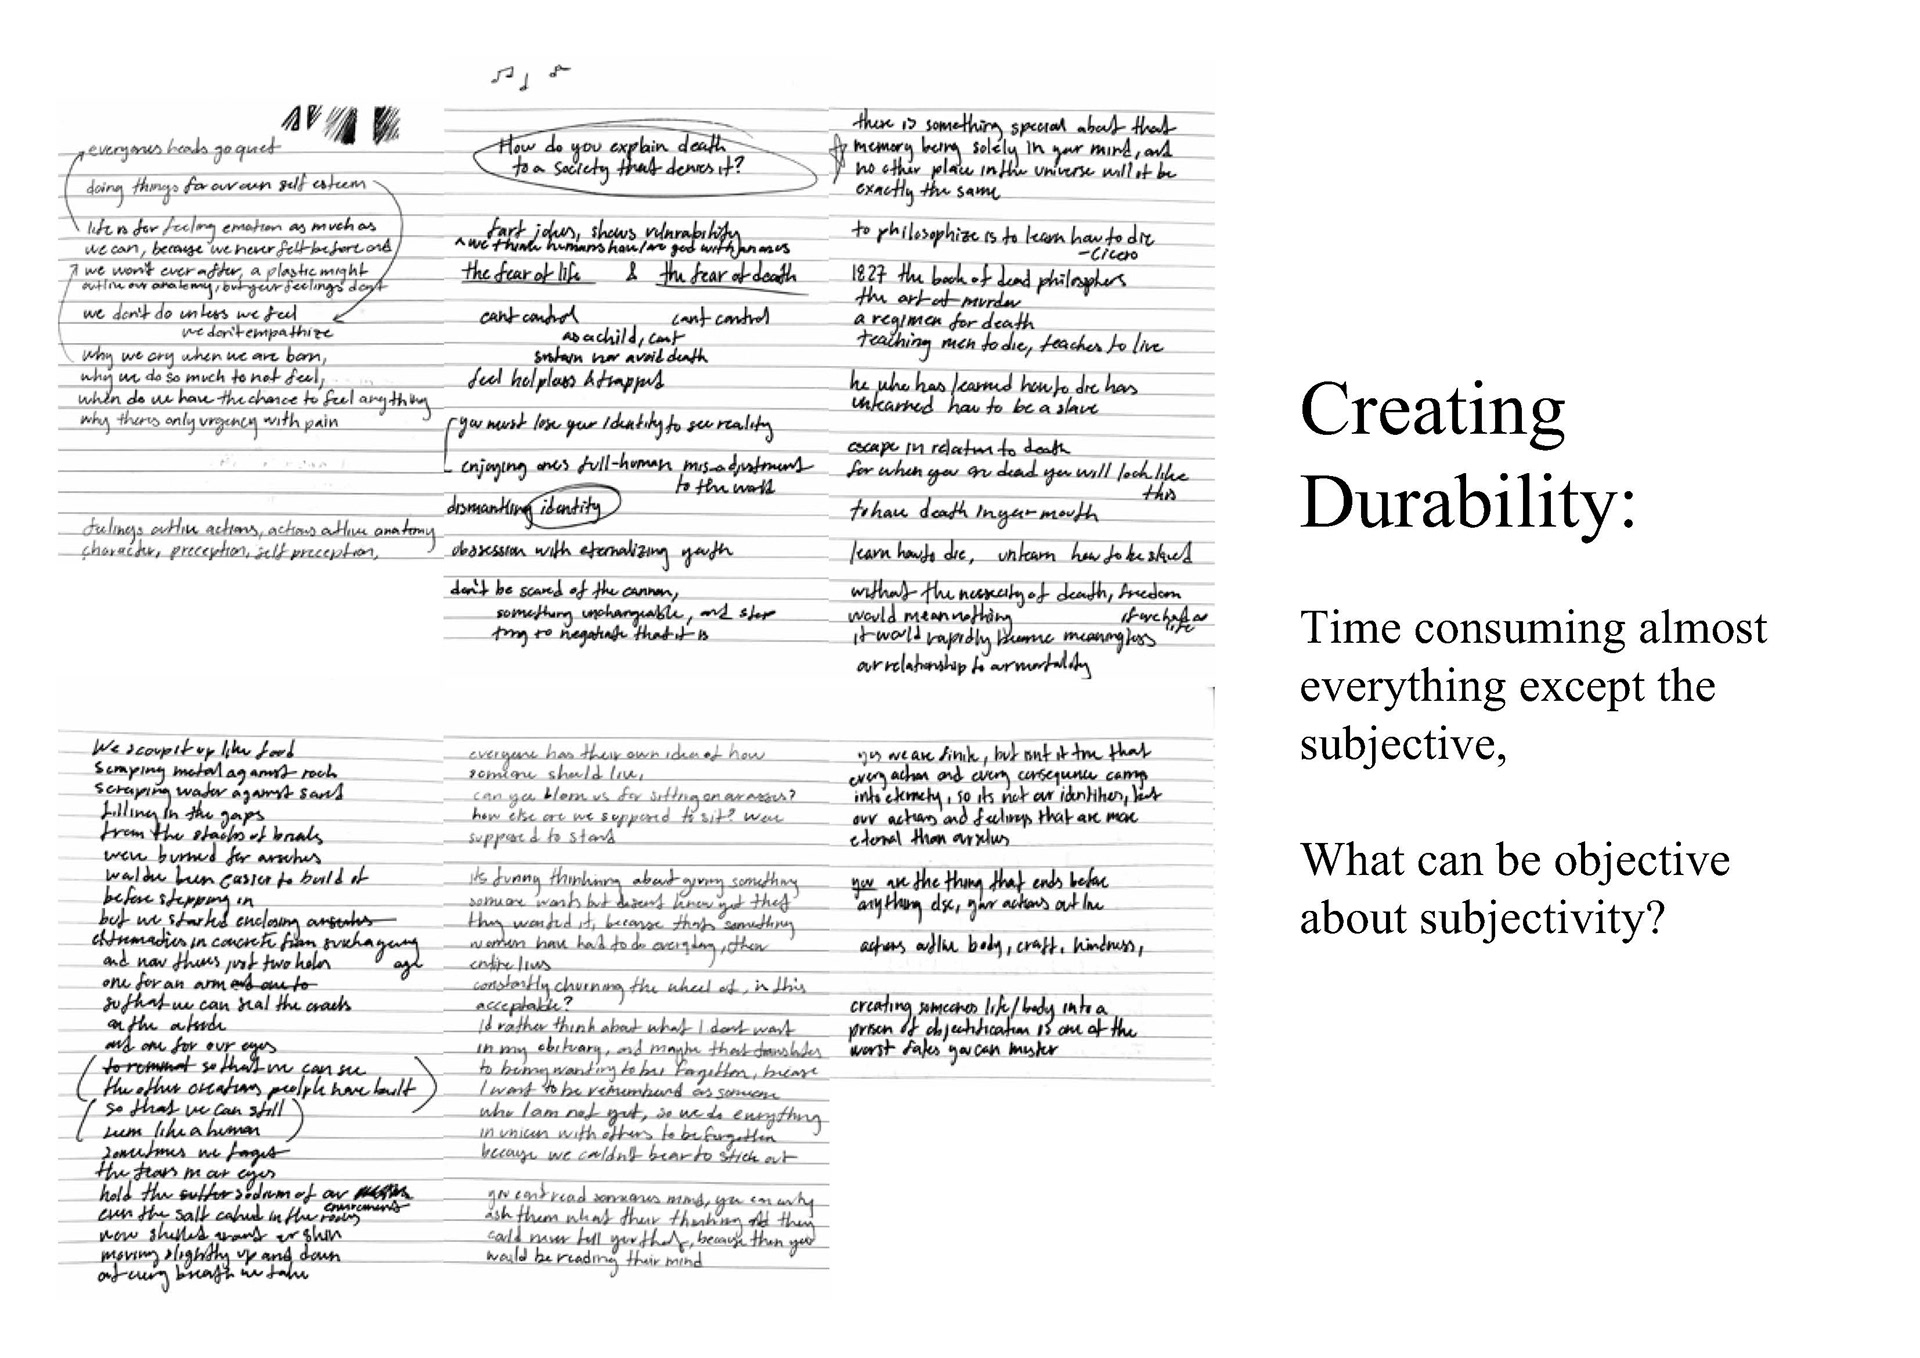 everyones heads go quiet
doing things for our own self esteem
life is for feeling emotion as much as
we can, because we never felt before and
we won't ever after, a plastic might
outline our anatomy, but your feelings dont
we don't do unless we feel
we don't empathize
why we cry when we are born,
why we do so much to not feel,
when do we have the chance to feel anything
why theres only urgency with pain
feelings outline actions, actions outline anatomy
character, preception, self preception,
How do you explain death
to a society that denies it?
fart jokes, shows vulnrability
^ we think humans have/are god with anuses
the fear of life & the fear of death
cant control cant control
as a child, cant
sustain nor avoid death
feel helpless & trapped
you must lose your identity to see reality
enjoying ones full-human misadjustment
to the world
dismantling identity
obsession with eternalizing youth
don't be scared of the cannon,
something unchangeable, and stop
trying to negotiate that it is
there is something special about that
memory being solely in your mind, and
no other place in the universe will it be
exactly the same
to philosophize is to learn how to die
-Cicero
1827 the book of dead philosophers
the art of murder
a regimen for death
teaching men to die, teaches to live
he who has learned how to die has
unlearned how to be a slave
escape in relation to death
for when you are dead you will look like
this
to have death in your mouth
learn how to die, unlearn how to be slaved
without the nessecity of death, freedom
would mean nothing if we had no
life
it would rapidly become meaningless
our relationship to our mortality
We scoop it up like food
Scraping metal against rock
Scraping water against sand
filling in the gaps
from the stacks of bricks
were burned for
would've been easier to build it
before stepping in
but we started enclosing
in concrete from such a young
age
and now theres just two holes
one for an arm
so that we can seal the cracks
on the outside
and one for our eyes
so that we can see
the other creations people have built
so that we can still
seem like a human
sometimes we forget
the tears in our eyes
hold the sodium of our
even the salt caked in the
enviroment
now shelled around our skin
moving slightly up and down
at every breath we take
everyone has their own idea of how
someone should live,
can you blame us for sitting on our asses?
how else are we supposed to sit? were
supposed to stand
its funny thinking about giving something
someone wants but doesnt know yet that
they wanted it, because thats something
women have had to do everyday, their
entire lives
constantly churning the wheel of, is this
acceptable?
I'd rather think about what I dont want
in my obituary, and maybe that translates
to being wanting to be forgotten, because
I want to be remembered as someone
who I am not yet, so we do everything
in unison with others to be forgotten
because we couldn't bear to stick out
you cant read someones mind, you can only
ask them what their thinking and they
could never tell you that, because then you
would be reading their mind
yes we are finite, but isnt it true that
every action and every consequence carries
into eternety, so its not our identities, but
our actions and feelings that are more
eternal than ourselves
you are the thing that ends before
anything else, your actions outlive
actions outlive body, craft, kindness,
creating someones life/body into a
prison of objectification is one of the
worst fates you can muster
Creating
Durability:
Time consuming almost
everything except the
subjective,
What can be objective
about subjectivity?